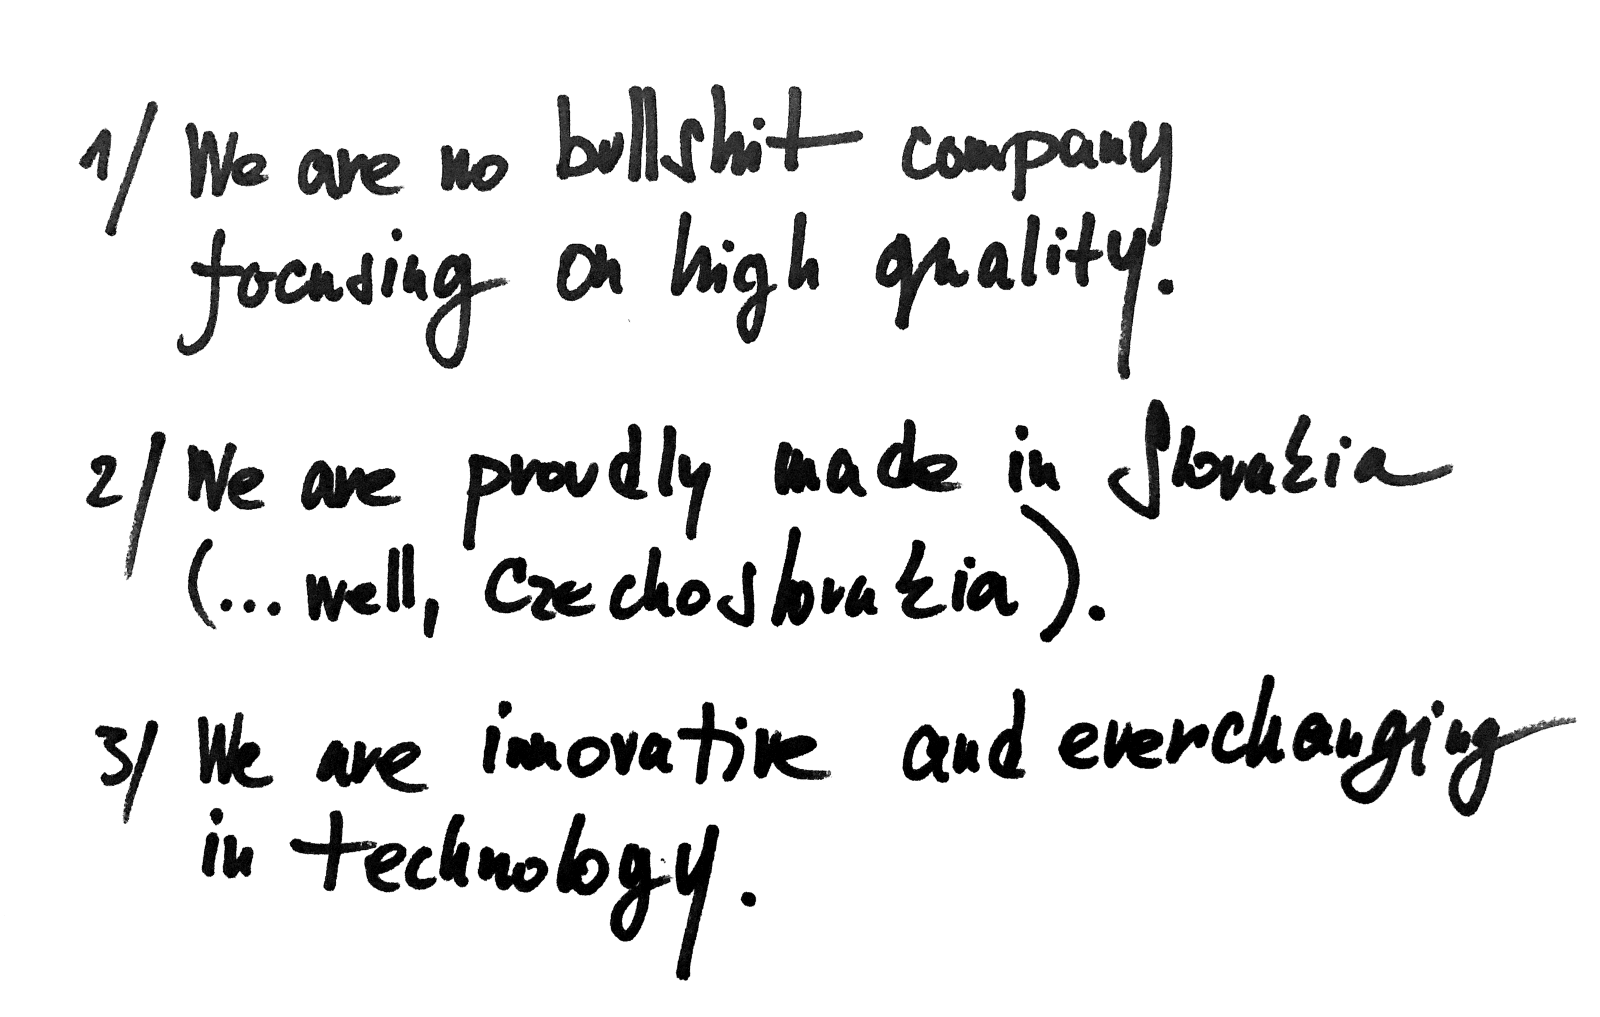 1/ We are no bullshit company
focusing on high quality.
2/ We are proudly made in Slovakia
(... well, Czechoslovakia).
3/ We are inovative and everchanging
in technology.